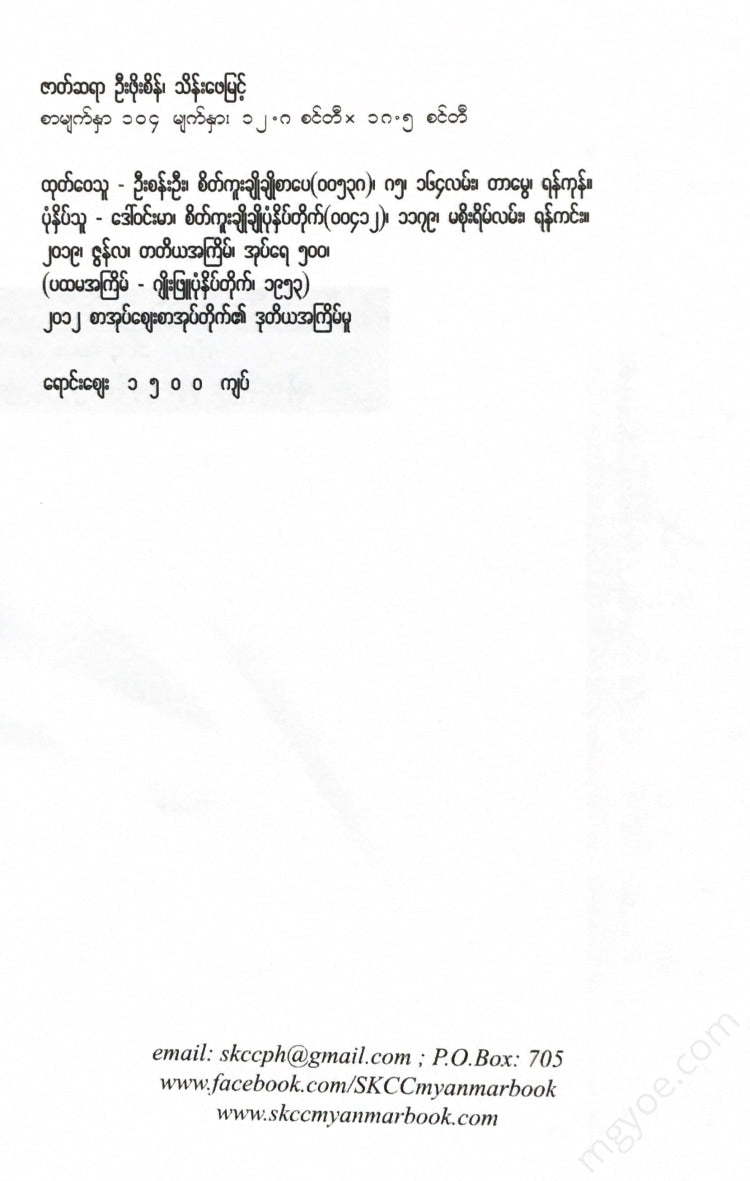 ဇာတ်ဆရာ ဦးဖိုးစိန်၊ သိန်းဖေမြင့်
စာမျက်နှာ ၁၀၄ မျက်နှာ၊ ၁၂.၈ စင်တီ × ၁၈.၅ စင်တီ
ထုတ်ဝေသူ - ဦးစန်းဦး၊ စိတ်ကူးချိုချိုစာပေ(၀၀၅၃၈)၊ ၈၅၊ ၁၆၄လမ်း၊ တာမွေ၊ ရန်ကုန်။
ပုံနှိပ်သူ - ဒေါ်ဝင်းမာ၊ စိတ်ကူးချိုချိုပုံနှိပ်တိုက်(၀၀၄၁၂)၊ ၁၁၇၉၊ မစိုးရိမ်လမ်း၊ ရန်ကင်း။
၂၀၁၉၊ ဇွန်လ၊ တတိယအကြိမ်၊ အုပ်ရေ ၅၀၀၊
(ပထမအကြိမ် - ဂျိုးဖြူပုံနှိပ်တိုက်၊ ၁၉၅၃)
၂၀၁၂ စာအုပ်ဈေးစာအုပ်တိုက်၏ ဒုတိယအကြိမ်မူ
ရောင်းဈေး ၁ ၅ ၀ ၀ ကျပ်
email: skccph@gmail.com ; P.O.Box: 705
www.facebook.com/SKCCmyanmarbook
www.skccmyanmarbook.com
mgyoe.com